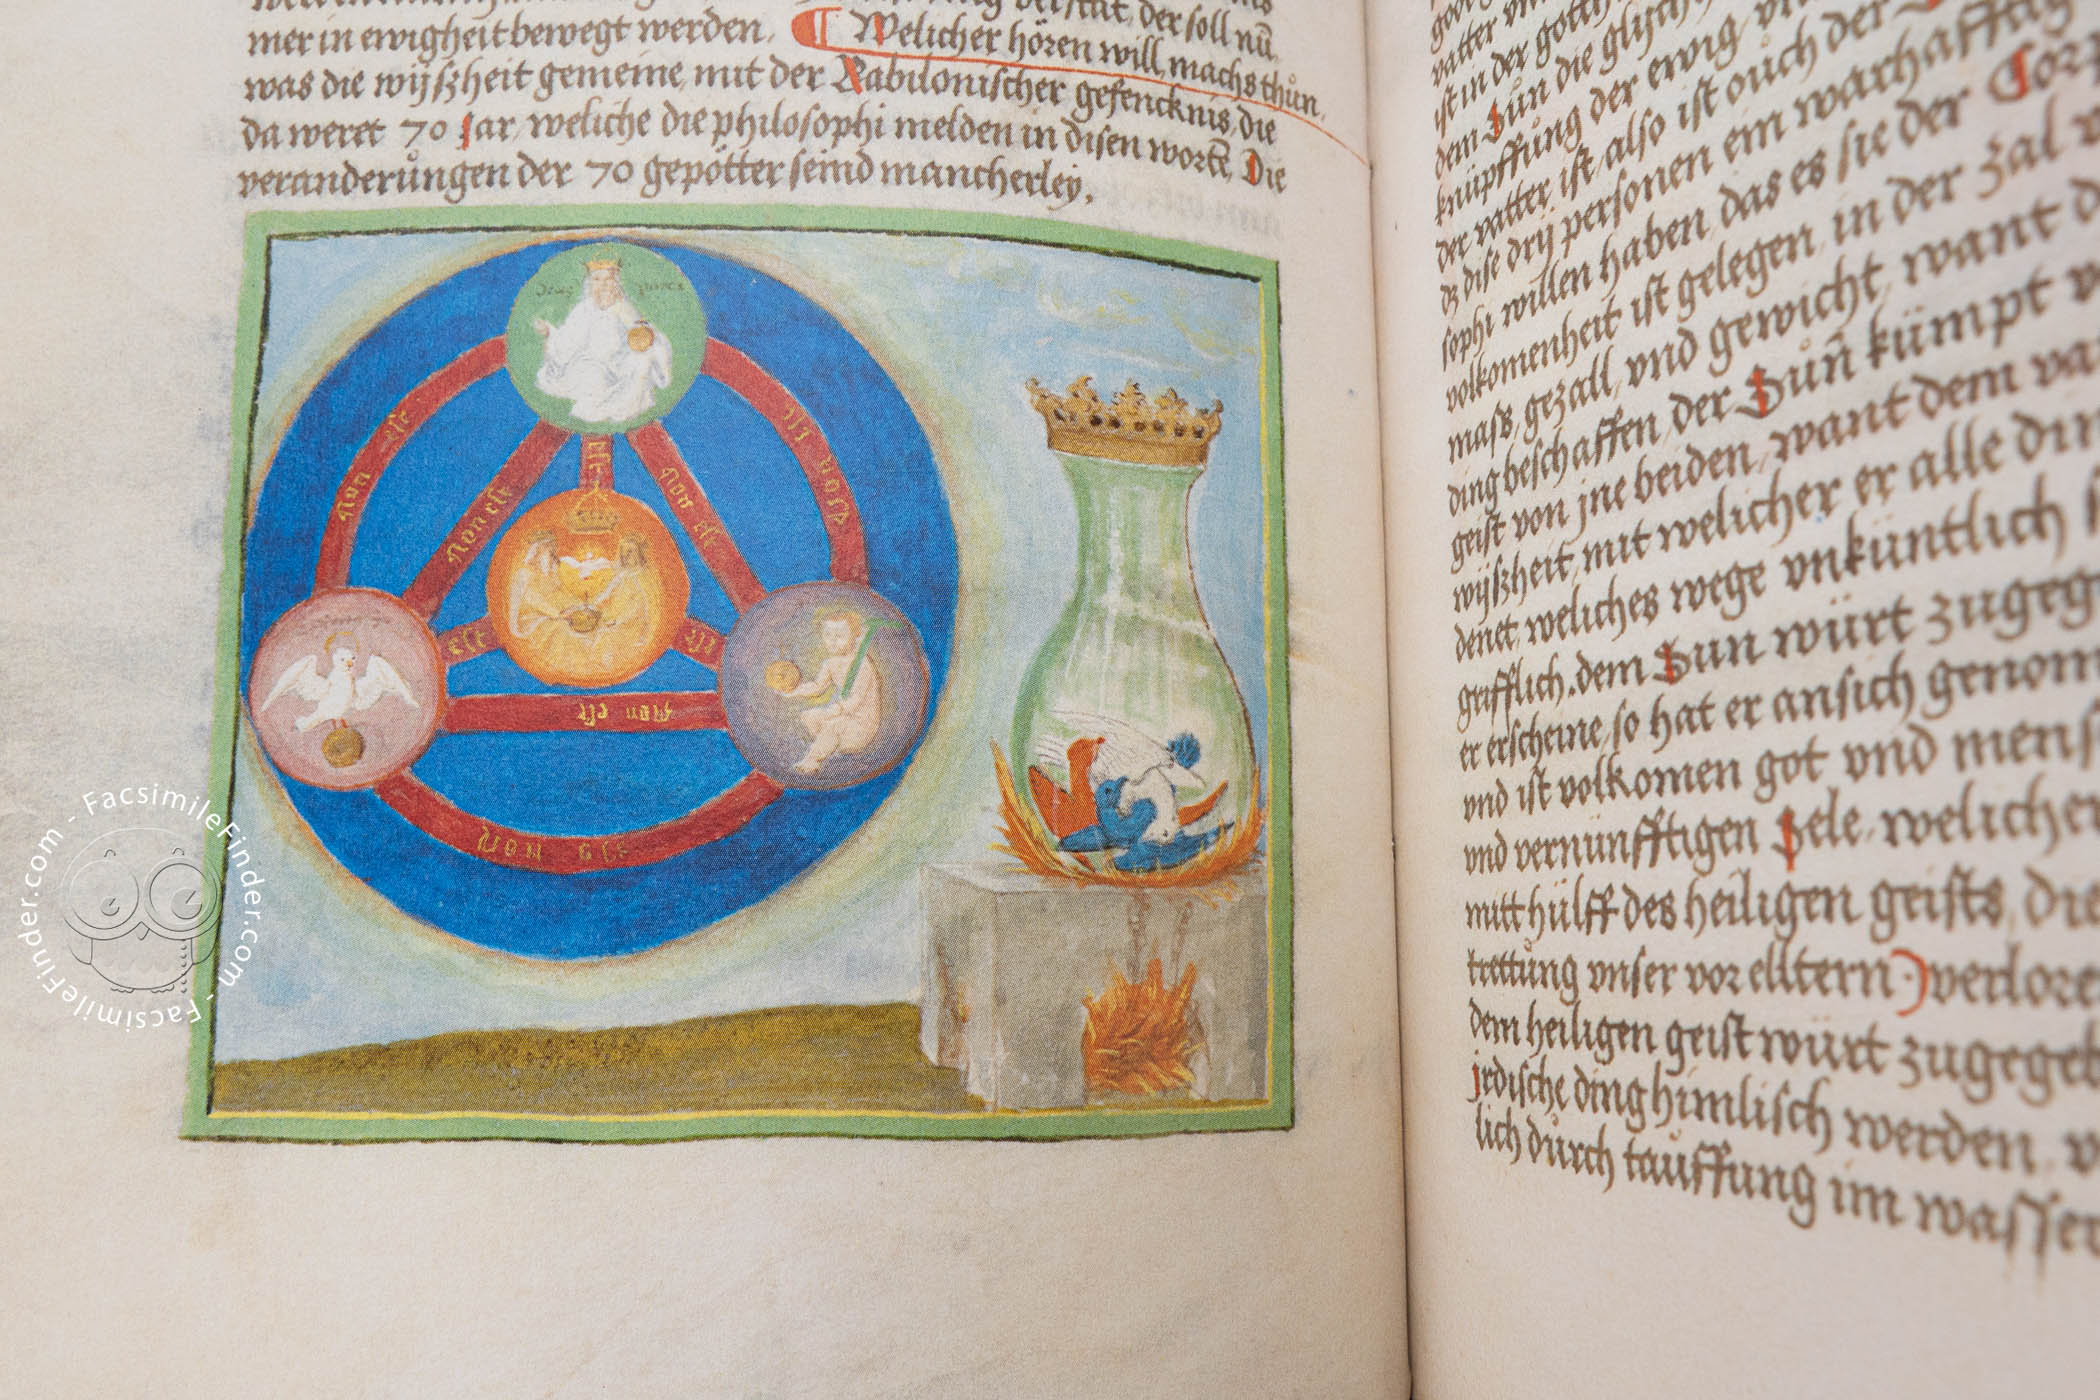 mer in ewigheit bewegt werden. ¶ Welicher hören will, machs thůn,
was die wÿszheit gemeine, mit der Babilonischer gefencknis, die
da weret 70 Jar, weliche die philosophi melden in disen wortē, Die
veranderůngen der 70 gepötter seind mancherleÿ.
deus pater
non est
non est
est
non est
non est
est
est
deus
non est
non est
vatter
ist in der
dem Sun die
knüpffung der ewig
der vatter ist, also ist ouch der
dz dise drÿ personen ein warhafftig
sophi willen haben, das es sie der Corp
volkomenheit ist gelegen, in der zal
mass, gezall, vnd gewicht, want
ding beschaffen, der Sun kümpt
geist von jne beiden, want dem va
wÿszheit, mit welicher er alle din
denet, weliches wege vnküntlich
grifflich. dem Sun würt zugeg
er erscheine, so hat er ansich genom
vnd ist volkomen got vnd mens
vnd vernünfftigen Sele, welicher
mitt hülff des heiligen geists,
trettůng vnser vor elltern) verlore
dem heiligen geist würt zugegeb
jrdische ding himlisch werden,
lich důrch tauffung im wasser
FacsimileFinder.com - FacsimileFinder.com - FacsimileFinder.com